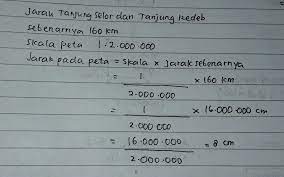 Jarak Tanjung Selor dan Tanjung Redeb
sebenarnya 160 km
Skala peta 1 : 2.000.000
Jarak pada peta = skala x Jarak sebenarnya
= 1 / 2.000.000 x 160 km
= 1 / 2.000.000 x 16.000.000 cm
= 16.000.000 / 2.000.000 = 8 cm